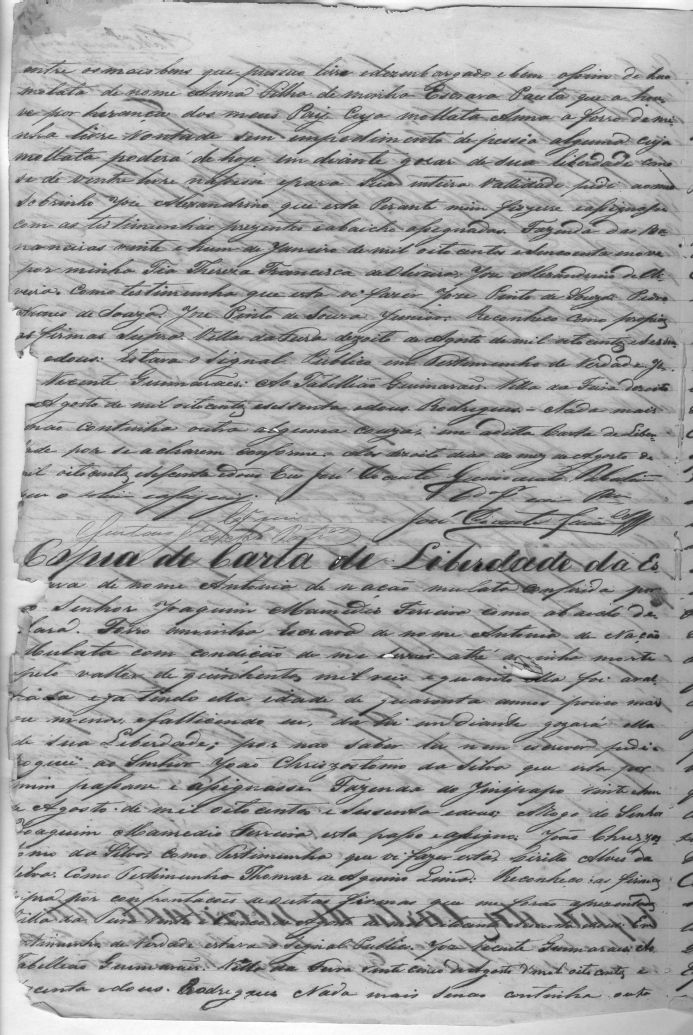 entre os mais bens que possuo livre e dezembargado e bem assim de hua
mulata de nome Anna Filha de minha Escrava Paula que a hou
ve por herança dos meus Pays Cuja mollata Anna a forro de mi
nha livre Vontade sem impedimento de pessoa alguma cuja
mollata podera de hoje em diante gozar de sua liberdade como
se de ventre livre nascesse e para sua inteira Vallidade pedi a meu
Sobrinho Joze Alexandrino que esta Perante mim fizesse e assignasse
com as testimunhas prezentes e abaicho assignadas. Fazenda das Ba
naneiras vinte e hum de Janeiro de mil oito centos e sincoenta e nove
por minha Tia Thereza Francisca de Oliveira, Joze Alexandrino de Oli
veira. Como testimunha que esta vi fazer Joze Pinto de Souza. Pedro
Nunes de Souza. Joze Pinto de Souza Junior. Reconheço como proprias
as firmas Supra. Villa da Feira dezoito de Agosto de mil oito centos e sessen
e dous. Estava o Signal Publico em Testimunho de Verdade Je
Vicente Guimarães. Ao Tabellião Guimarães. Villa da Feira dezoito
Agosto de mil oito centos e sessenta e dous. Rodrigues = Nada mais
não continha outra alguma couza, em a dita Carta de Liber
dade por se acharem conforme. Aos dezoito dias do mez de Agosto de
mil oito centos e sessenta e dous Eu José Vicente Guimarães Tabelião
que o sobscrevi e assigney.
José Vicente Guim
Copia de Carta de Liberdade da Es
crava de nome Antonia de nação mulata conferida po
o Senhor Joaquim Mamedio Ferreira como abaicho de
clara. Forro a minha Escrava de nome Antonia de Nação
Mulata com condição de me servir até a minha morte
pelo vallor de quinhentos mil reis e quanto ella foi aval
iada e ja tendo ella idade de quarenta annos pouco mais
ou menos, e fallicendo eu, da hi em diante gozará ella
de sua Liberdade; por nao saber ler nem escrever pedi e
roguei ao Senhor João Chrizostomo da Silva que esta por
mim passasse e assignasse. Fazenda do Jinipapo vinte e hum
de Agosto de mil oito centos e sessenta e dous. A Rogo do Senhor
Joaquim Mamedio Ferreira, esta passo e assigno. João Chrizos
tomo da Silva. Como Testimunha que vi fazer esta. Cirillo Alves da
Silva. Como Testimunha Thomas de Aquino Lima. Reconheço as firmas
supra por confrontações a outras firmas que me forão aprezentadas
Villa da Feira vinte e cinco de Agosto de mil oito centos e sessenta e dous. Em
testimunho de Verdade estava o Signal Publico. Joze Vicente Guimarães. Ao
Tabellião Guimarães. Villa da Feira vinte cinco de Agosto de mil oito centos e
secenta e dous. Rodrigues. Nada mais senão continha outra